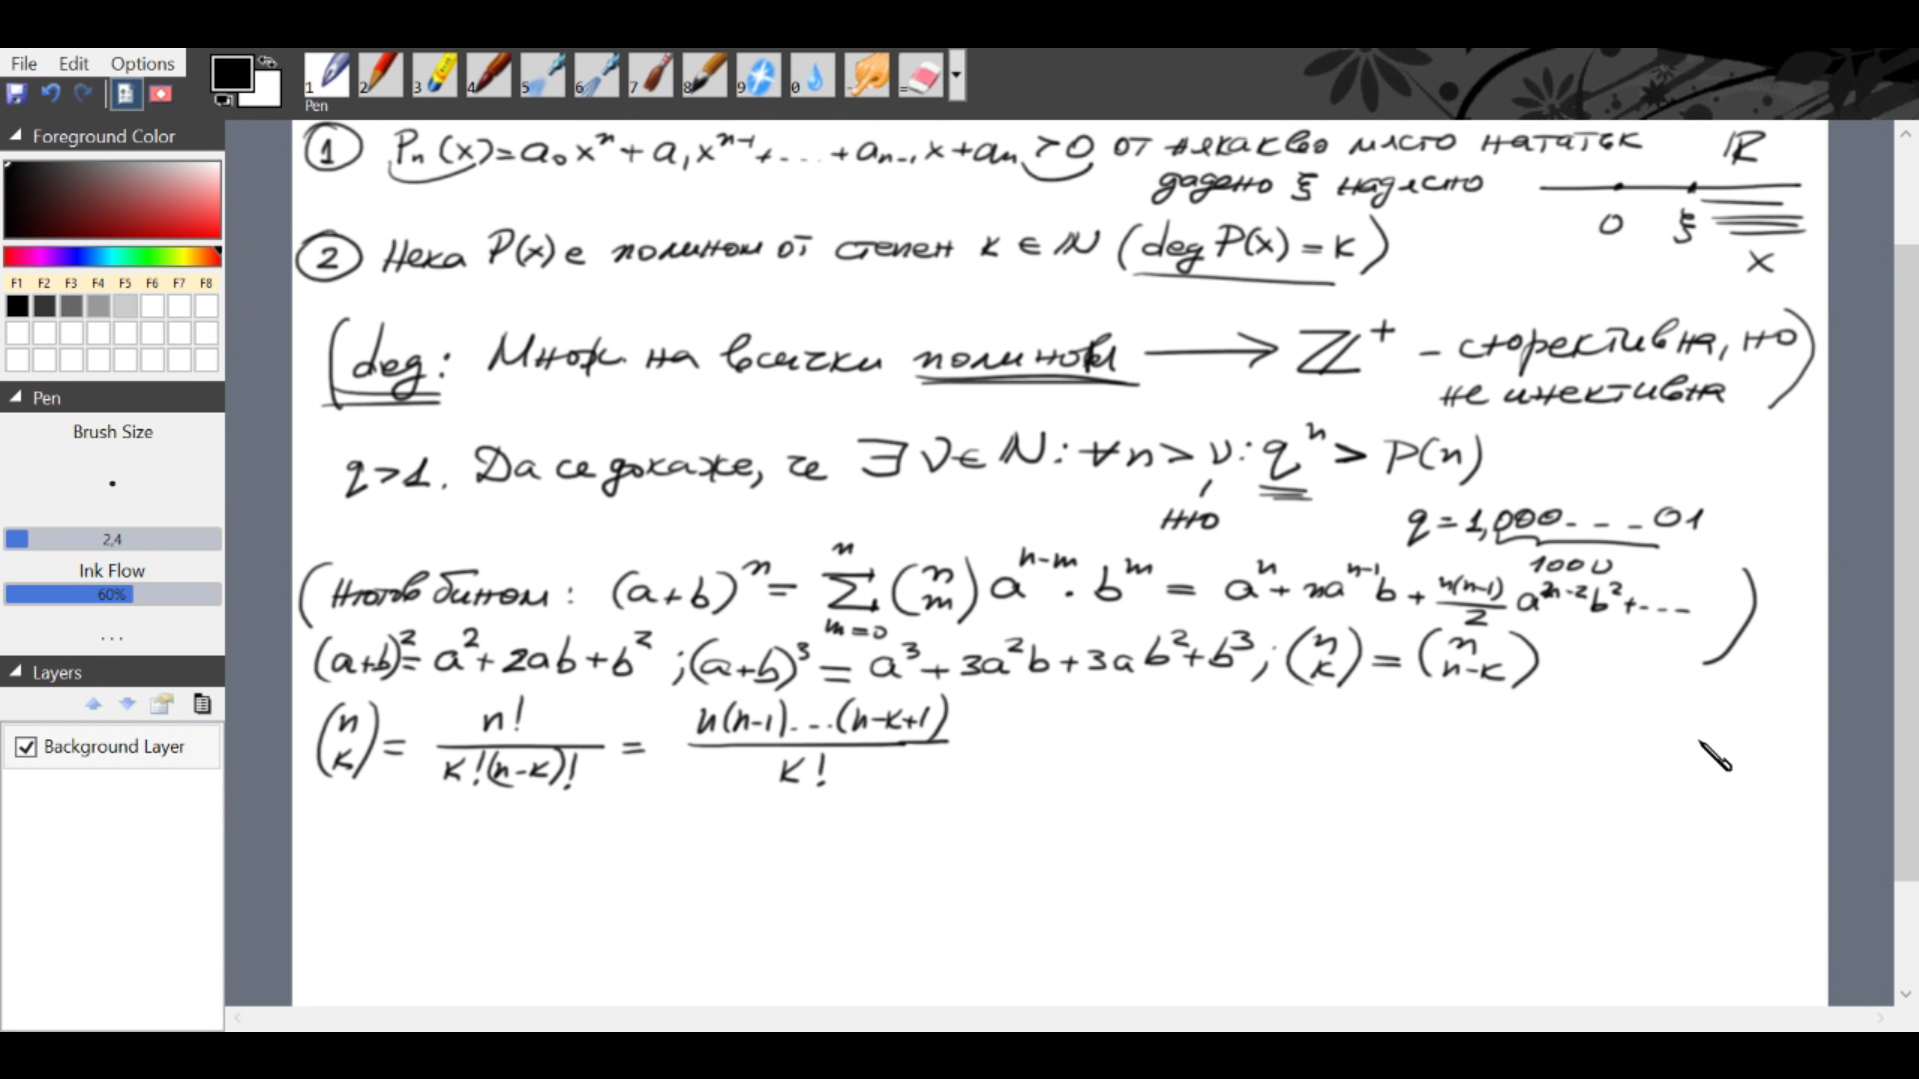 File Edit Options
1 2 3 4 5 6 7 8 9 0 - =
Pen
Foreground Color
F1 F2 F3 F4 F5 F6 F7 F8
Pen
Brush Size
2,4
Ink Flow
60%
...
Layers
Background Layer
① Pₙ(x)=a₀xⁿ+a₁xⁿ⁻¹+...+aₙ₋₁x+aₙ >0 от някакво място нататък ℝ
дадено ξ надясно
0 ξ x
② Нека P(x) е полином от степен k ∈ ℕ (deg P(x) = k)
(deg: Множ. на всички полиноми ⟶ ℤ⁺ – сюрективна, но
не инективна)
q>1. Да се докаже, че ∃ν∈ℕ: ∀n>ν: qⁿ > P(n)
ню
q=1,000...01
1000
(Нютонов бином: (a+b)ⁿ = ∑_{m=0}^{n} (n m) aⁿ⁻ᵐ . bᵐ = aⁿ + naⁿ⁻¹b + n(n-1)/2 aⁿ⁻²b² + ...
(a+b)² = a²+2ab+b² ; (a+b)³ = a³+3a²b+3ab²+b³ ; (n k) = (n n-k) )
(n k) = n!/k!(n-k)! = n(n-1)...(n-k+1)/k!